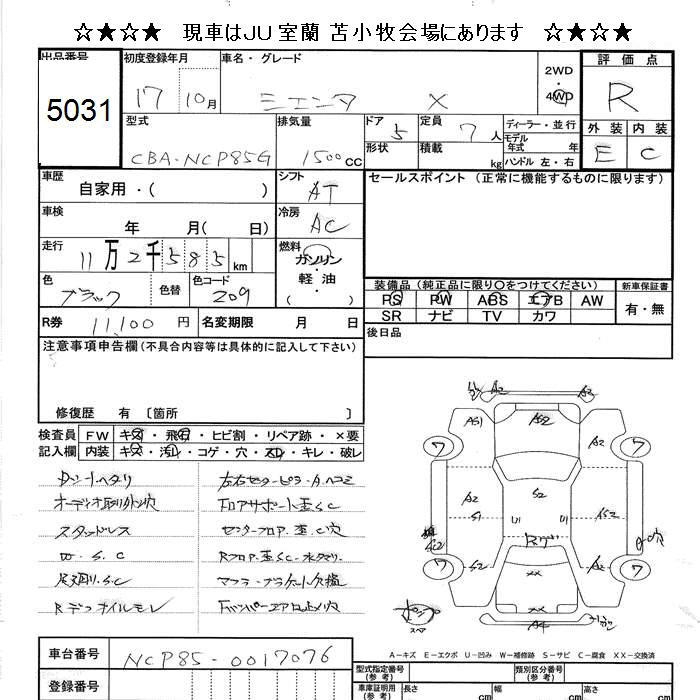 ☆★☆★ 現車はJU室蘭 苫小牧会場にあります ☆★☆★
出品番号 5031
初度登録年月 17 10月
車名・グレード シエンタ X
2WD・4WD
評価点 R
型式 CBA-NCP85G
排気量 1500cc
ドア 5
形状
定員 7人
積載 kg
ディーラー・並行
モデル年式 年
ハンドル 左・右
外装 E
内装 C
車歴 自家用・( )
シフト AT
セールスポイント (正常に機能するものに限ります)
車検 年 月( 日)
冷房 AC
走行 11万2千585km
燃料 ガソリン・軽油 ( )
色 ブラック
色替
色コード 209
装備品 (純正品に限り〇をつけてください)
新車保証書
PS PW ABS エアB AW
SR ナビ TV カワ
有・無
R券 11,100円
名変期限 月 日
後日品
注意事項申告欄 (不具合内容等は具体的に記入して下さい)
修復歴 有 〔箇所 〕
検査員記入欄
FW キズ・飛石・ヒビ割・リペア跡・×要
内装 キズ・汚れ・コゲ・穴・スレ・キレ・破レ
Dシートヘタリ
オーディオ取り外シ穴
スタッドレス
S.C
Rデフオイルモレ
左右センターピラーAヘコミ
フロアサポート歪S.C
センターフロア歪C穴
Rフロア歪S.C
A2
A3
AS1
AS2
A2
ワ
ワ
A2
S1
S2
U1
U1
AS2
Rゲ
ワ
S2
XX
A2
ワ
XX
A4
スペア
A−キズ E−エクボ U−凹み W−補修跡 S−サビ C−腐食 XX−交換済
車台番号 NCP85-0017076
登録番号
型式指定番号 (参考)
類別区分番号 (参考)
車庫証明用 (参考) 長さ cm 幅 cm 高さ cm